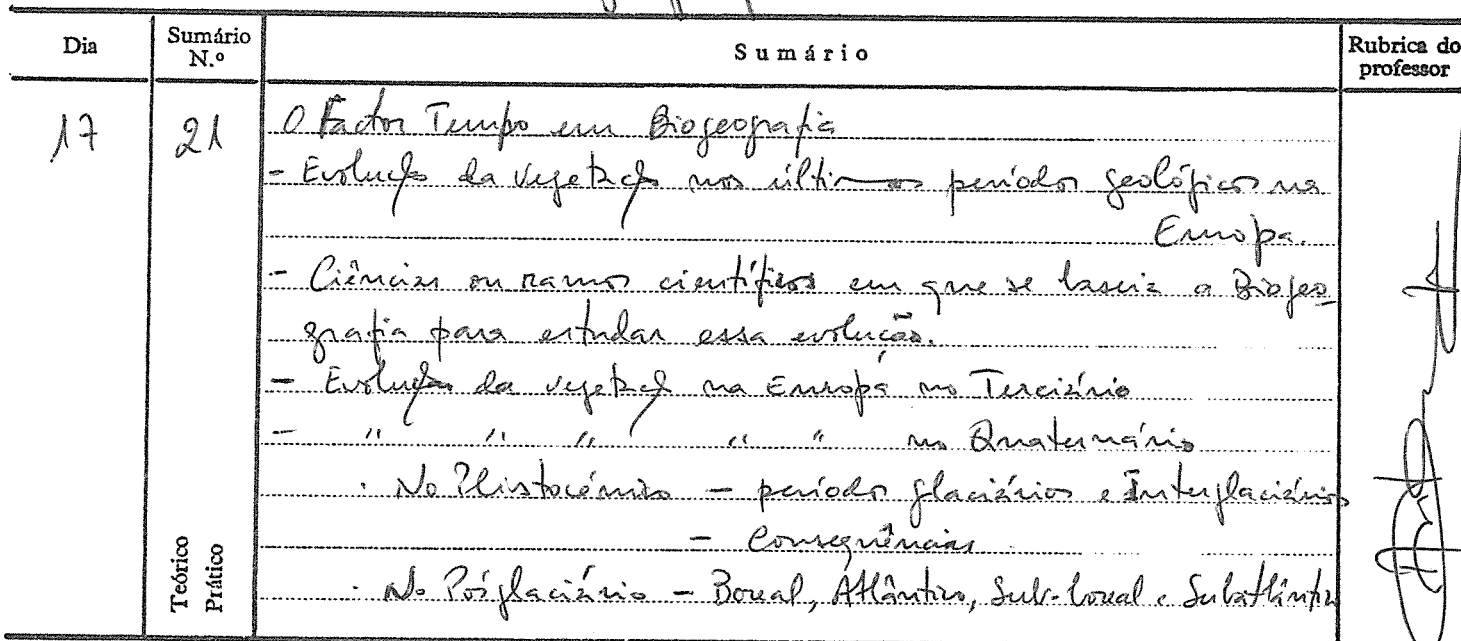 Dia Sumário N.º Sumário Rubrica do professor
17 21 O Factor Tempo em Biogeografia
- Evolução da vegetação nos últimos períodos geológicos na
Europa.
- Ciências ou ramos científicos em que se baseia a Biogeo-
grafia para estudar essa evolução.
- Evolução da vegetação na Europa no Terciário
- " " " " " no Quaternário
· No Plistocénico - períodos glaciários e Interglaciários
- Consequências
· No Pósglaciário - Boreal, Atlântico, Sub-boreal e Subatlântico
Teórico
Prático